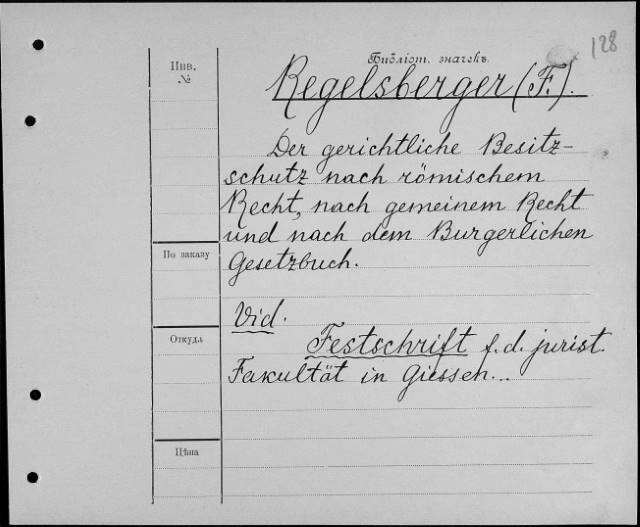 128
Библіот. значекъ.
Инв.
№
Regelsberger (F.).
Der gerichtliche Besitz-
schutz nach römischem
Recht, nach gemeinem Recht
und nach dem Burgerlichen
Gesetzbuch.
По заказу
Vid.
Откуда
Festschrift f. d. jurist.
Fakultät in Giessen...
Цѣна